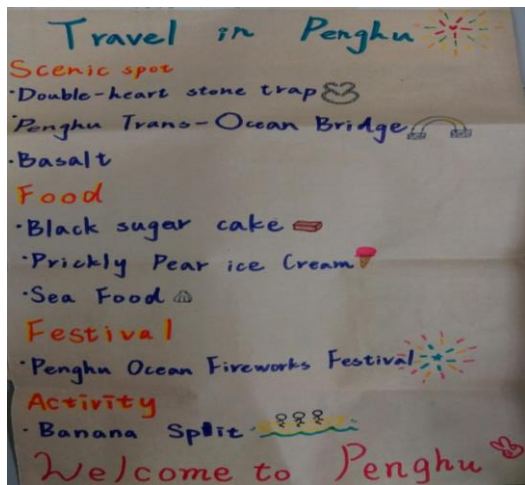 Travel in Penghu
Scenic spot
·Double-heart stone trap
·Penghu Trans-Ocean Bridge
·Basalt
Food
·Black sugar cake
·Prickly Pear ice Cream
·Sea Food
Festival
·Penghu Ocean Fireworks Festival
Activity
·Banana Split
Welcome to Penghu